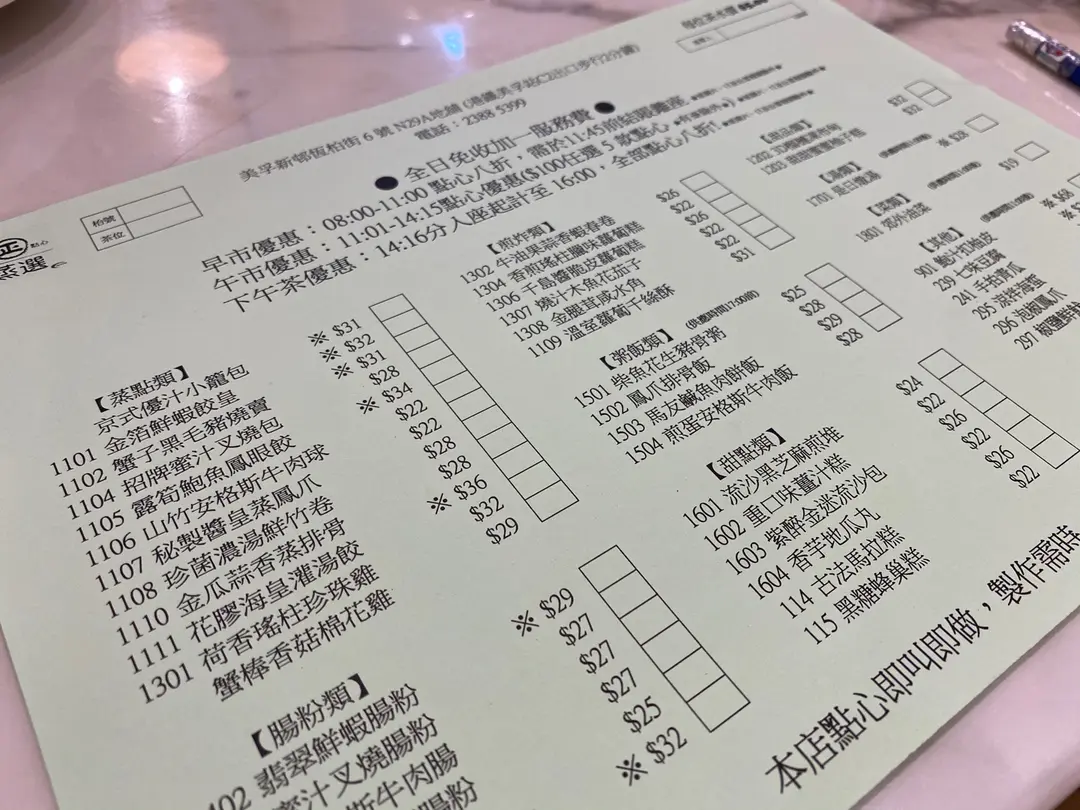 美孚新邨恆柏街 6 號 N29A地舖 (港鐵美孚站C2出口步行2分鐘)
電話：2388 5399
每位茶水價
枱號
茶位
正
點心
蒸選
● 全日免收加一服務費 ●
早市優惠：08:00-11:00 點心八折，需於11:45前結賬離座
午市優惠：11:01-14:15點心優惠($100任選 5 款點心
下午茶優惠：14:16分入座起計至 16:00，全部點心八折!
【蒸點類】
京式優汁小籠包 ※ $31
1101 金箔鮮蝦餃皇 ※ $32
1102 蟹子黑毛豬燒賣 ※ $31
1104 招牌蜜汁叉燒包 $28
1105 露筍鮑魚鳳眼餃 ※ $34
1106 山竹安格斯牛肉球 $22
1107 秘製醬皇蒸鳳爪 $22
1108 珍菌濃湯鮮竹卷 $28
1110 金瓜蒜香蒸排骨 $28
1111 花膠海皇灌湯餃 ※ $36
1301 荷香瑤柱珍珠雞 $32
蟹棒香菇棉花雞 $29
【腸粉類】
402 翡翠鮮蝦腸粉 ※ $29
蜜汁叉燒腸粉 $27
斯牛肉腸 $27
腸粉 $27
$25
※ $32
【煎炸類】
1302 牛油果茶香蝦春卷 $26
1304 香煎瑤柱臘味蘿蔔糕 $22
1306 千島醬脆皮蘿蔔糕 $26
1307 燒汁木魚花茄子 $22
1308 金腿茸咸水角 $22
1109 溫室蘿蔔千絲酥 $31
【粥飯類】 (供應時間17:00前)
1501 柴魚花生豬骨粥 $25
1502 鳳爪排骨飯 $28
1503 馬友鹹魚肉餅飯 $29
1504 煎蛋安格斯牛肉飯 $28
【甜點類】
1601 流沙黑芝麻煎堆 $24
1602 重口味薑汁糕 $22
1603 紫醉金迷流沙包 $26
1604 香芋地瓜丸 $22
114 古法馬拉糕 $26
115 黑糖蜂巢糕 $22
【甜品類】
1202
1203
$22
$32
【湯類】
1701 是日燉湯 $28
1801 郊外油菜 $19
【其他】
901 鮑汁扣柚皮 ※ $68
239 七味豆腐
241 手拍青瓜
295 涼拌海蜇
296 泡椒鳳爪
297
本店點心即叫即做，製作需時